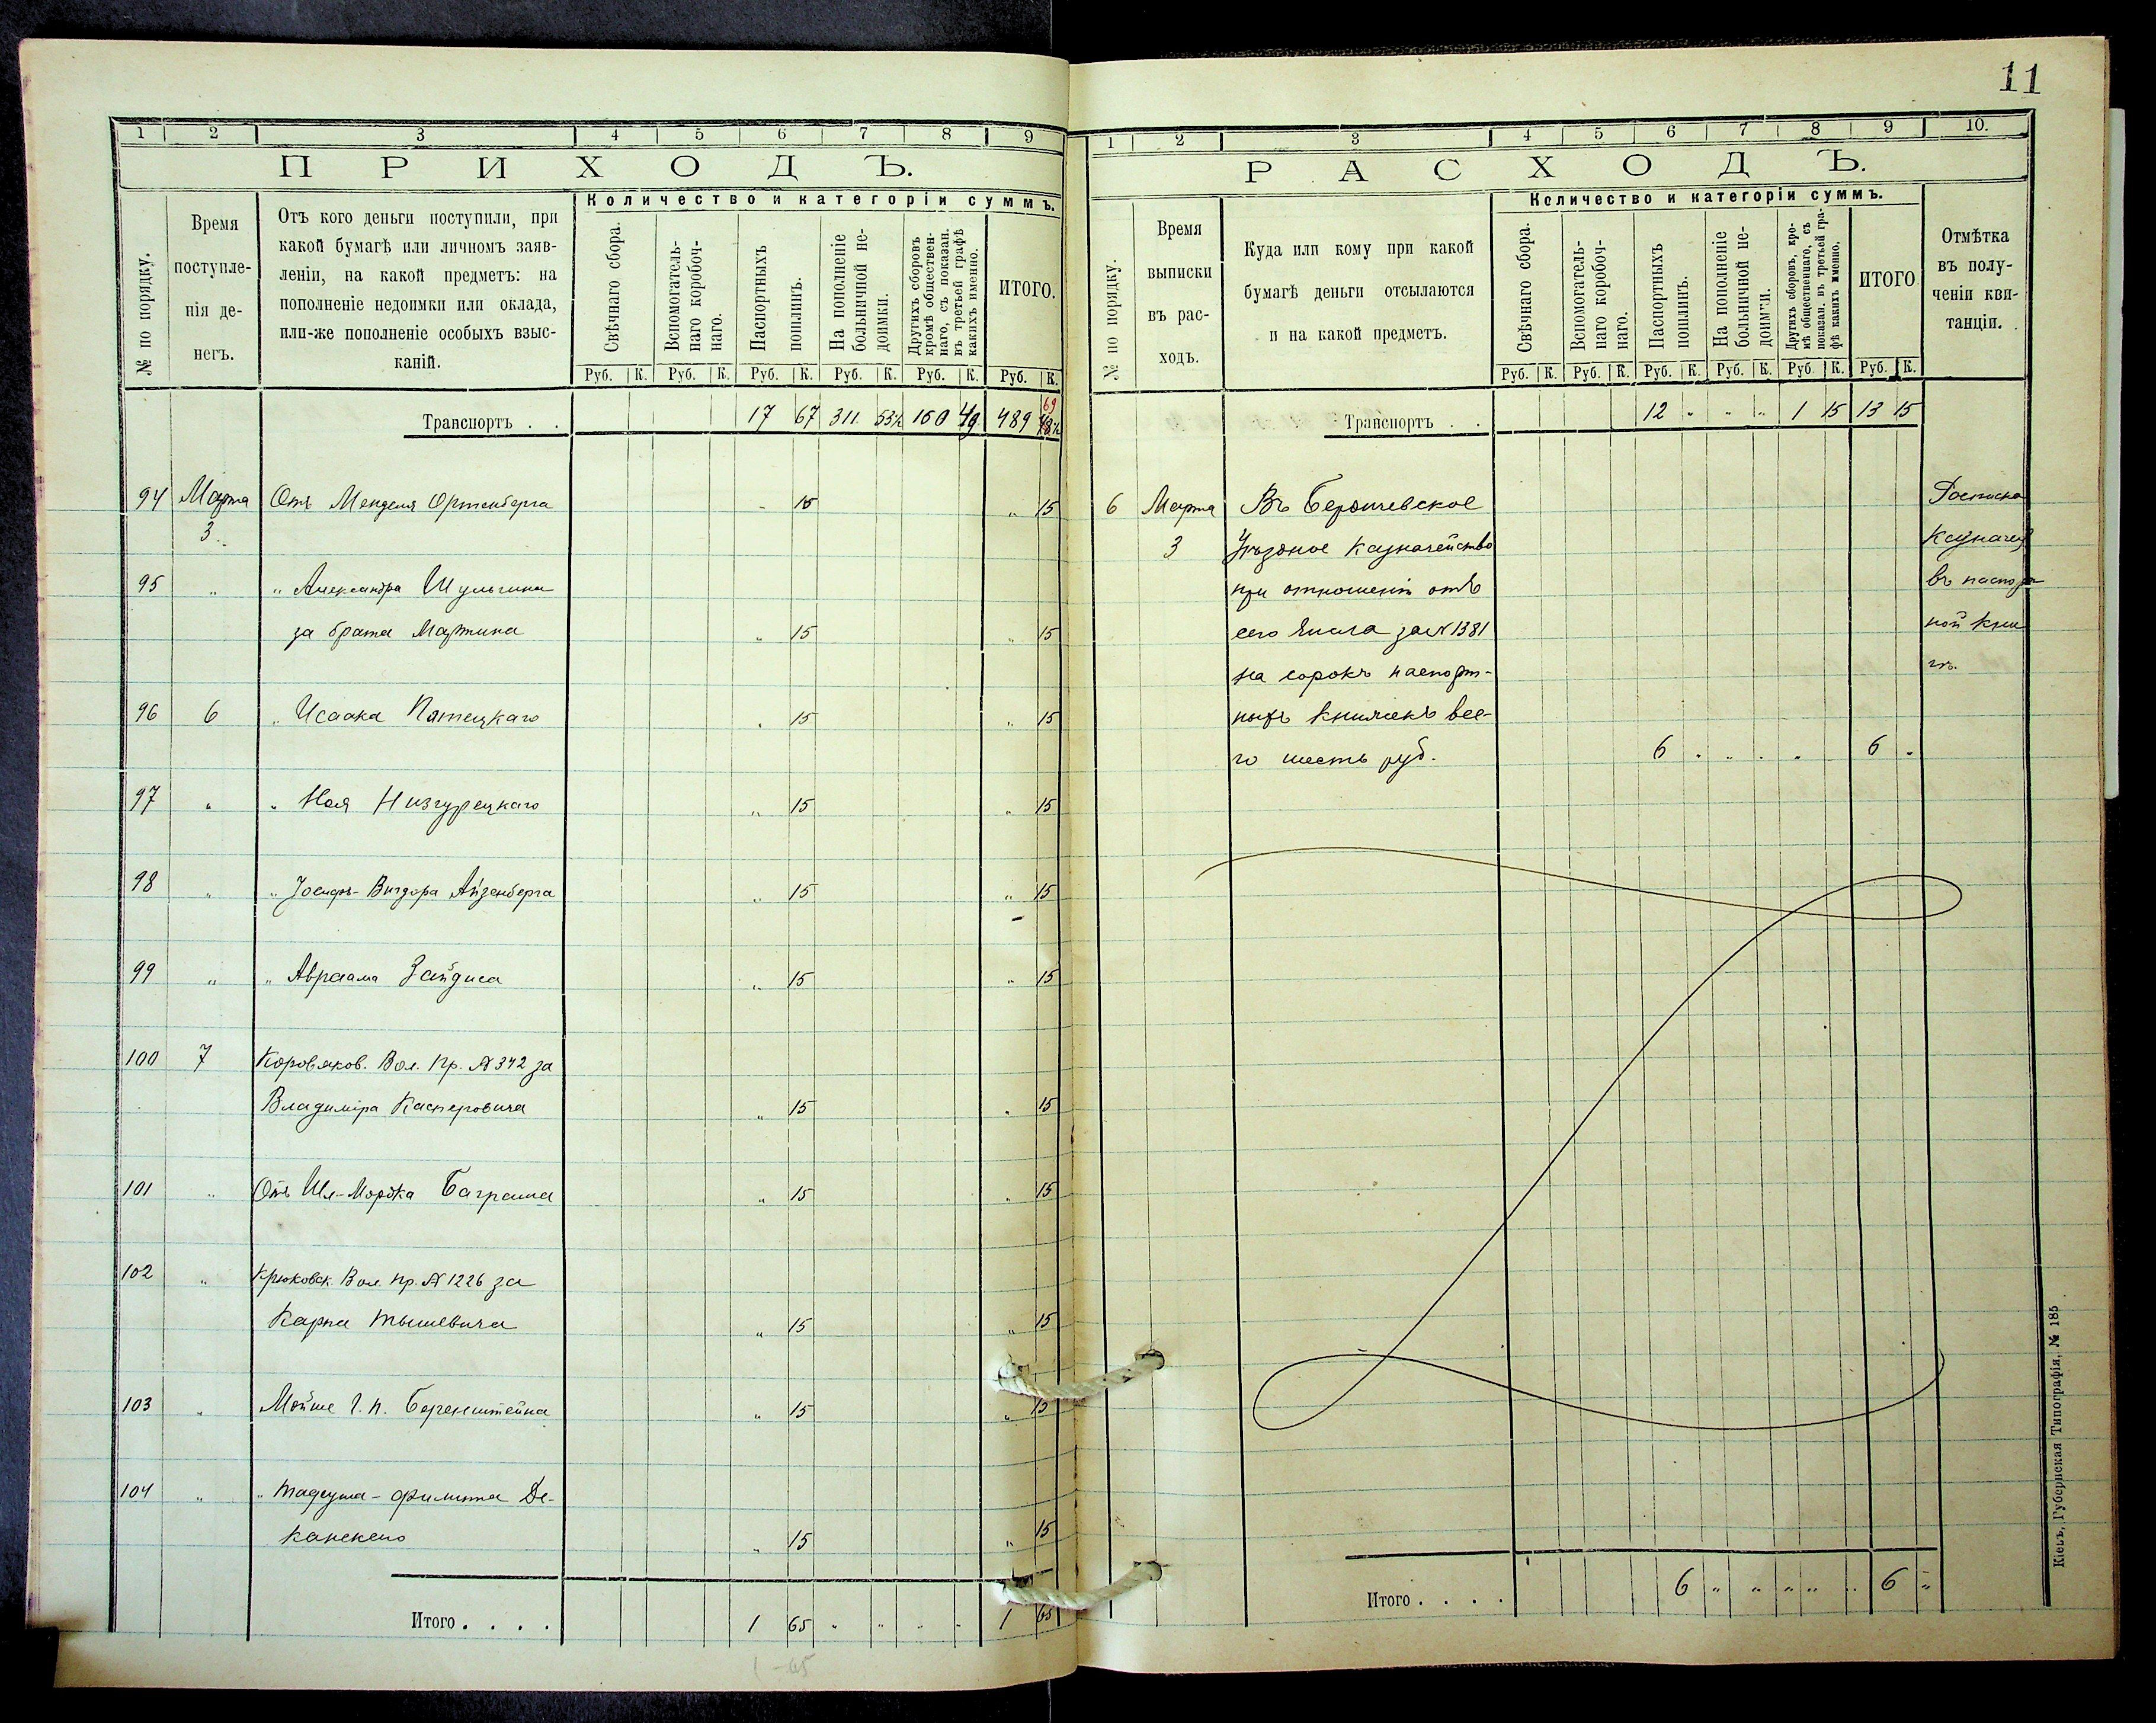 11
1 2 3 4 5 6 7 8 9
ПРИХОДЪ.
№ по порядку.
Время
поступле-
нія де-
негъ.
Отъ кого деньги поступили, при
какой бумагѣ или личномъ заяв-
леніи, на какой предметъ: на
пополненіе недоимки или оклада,
или-же пополненіе особыхъ взыс-
каній.
Количество и категоріи суммъ.
Свѣчнаго сбора.
Вспомогатель-
наго коробоч-
наго.
Паспортныхъ
пошлинъ.
На пополненіе
больничной не-
доимки.
Другихъ сборовъ
кромѣ обществен-
наго, съ показан.
въ третьей графѣ
какихъ именно.
ИТОГО.
Руб. К. Руб. К. Руб. К. Руб. К. Руб. К. Руб. К.
Транспортъ . . 17 67 311 53½ 160 49 489 69
94 Марта Отъ Менделя Ортенберга " 15 " 15
3
95 " " Александра Шульгина
за брата Мартина " 15 " 15
96 6 " Исаака Пятецкаго " 15 " 15
97 " " Ноя Низгурецкаго " 15 " 15
98 " " Іосифъ-Вигдора Айзенберга " 15 " 15
99 " " Авраама Зайдиса " 15 " 15
100 7 Коровяков. Вол. Пр. № 342 за
Владиміра Касперовича " 15 " 15
101 " Отъ Шл-Мордка Баграша " 15 " 15
102 " Крюковск. Вол. Пр. № 1226 за
Карпа Тышевича " 15 " 15
103 " Мойше Беренштейна " 15 " 15
104 " " Тадеуша-Филиппа Де-
канскаго " 15 " 15
Итого . . . . 1 65 " " " " 1 65
1-65
1 2 3 4 5 6 7 8 9 10.
РАСХОДЪ.
№ по порядку.
Время
выписки
въ рас-
ходъ.
Куда или кому при какой
бумагѣ деньги отсылаются
и на какой предметъ.
Количество и категоріи суммъ.
Свѣчнаго сбора.
Вспомогатель-
наго коробоч-
наго.
Паспортныхъ
пошлинъ.
На пополненіе
больничной не-
доимки.
Другихъ сборовъ, кро-
мѣ общественнаго, съ
показан. въ третьей гра-
фѣ какихъ именно.
ИТОГО
Отмѣтка
въ полу-
ченіи кви-
танціи.
Руб. К. Руб. К. Руб. К. Руб. К. Руб. К. Руб. К.
Транспортъ . . 12 " " " 1 15 13 15
6 Марта Въ Бердичевское
3 Уѣздное Казначейство
при отношеніи отъ
сего числа за № 1381
на сорокъ паспорт-
ныхъ книжекъ все-
го шесть руб. 6 " " " " 6 "
Росписка
Казначея
въ паспорт
ной кни
гѣ.
Итого . . . . 6 " " " " " 6 "
Кіевъ, Губернская Типографія, № 185